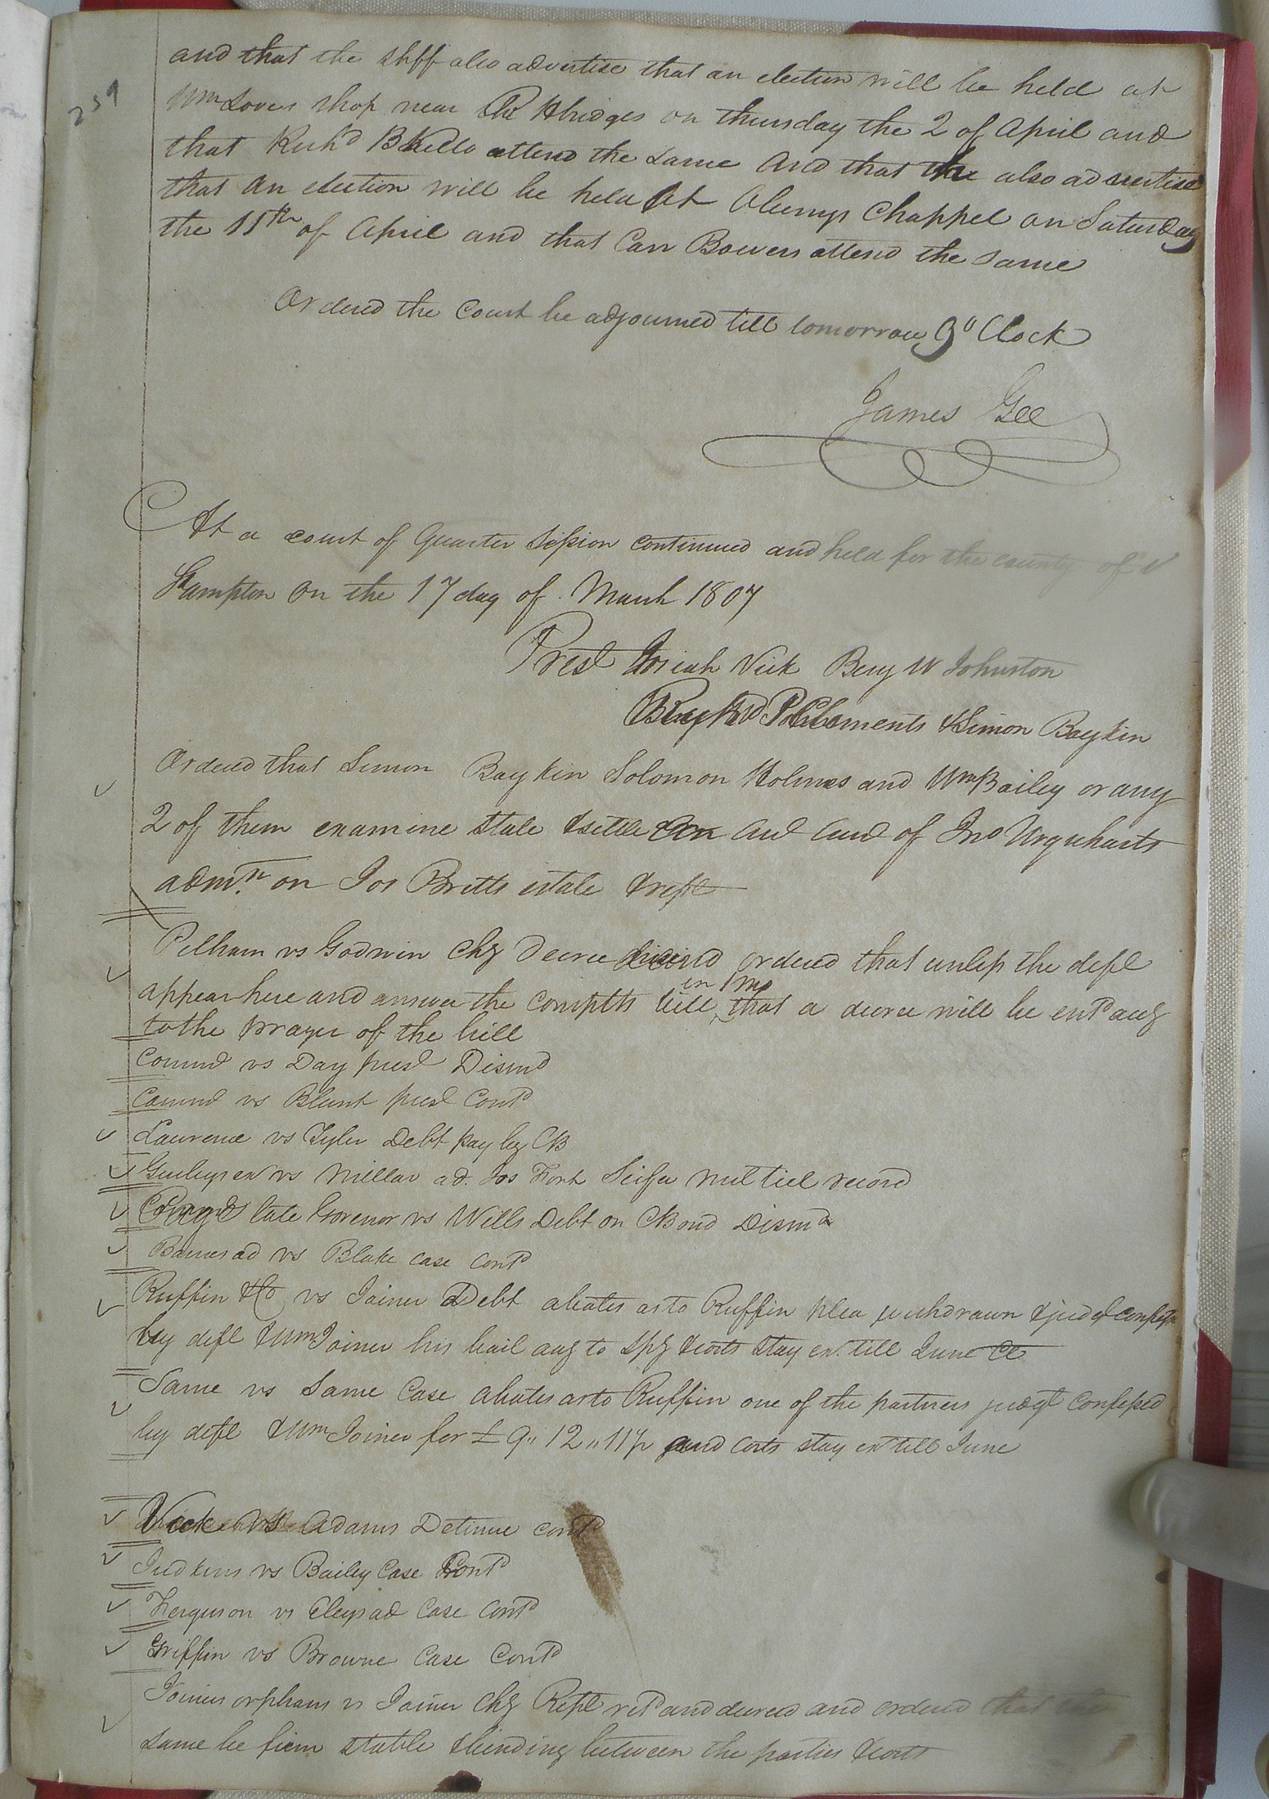 259
and that the Shff also advertise that an election will be held at
Wm Loves shop near the Hbridges on thursday the 2 of April and
that Richd B Kello attend the same and that the also advertise
that an election will be held At Clemys Chappel on Saturday
the 11th of April and that Carr Bowers attend the same
Ordered the Court be adjourned till tomorrow 9 O Clock
James Gee
At a court of Quarter Session continued and held for the county of
Hampton on the 17 day of March 1807
Prest Josiah Vick Benj W Johnston
Clements & Simon Boykin
Ordered that Simon Boykin Solomon Holmes and Wm Bailey or any
2 of them examine state & settle and Aud of Jno Urquharts
admr. on Jos Britts estate & rept
Pelham vs Godwin Chy Decree ordered that unless the deft
in 1 mo
appear here and answer the complts bill, that a decree will be entd aug
to the prayer of the bill
Commd vs Day prest Dismd
Commd vs Blunt prest Contd
Laurence vs Tyler Debt pay by CB
Gurleys ex vs Millar ad. Jos Fort Scifa nul tiel record
Page late Govenor vs Wells Debt on CBond Dismd
Barnes ad vs Blake case Contd
Ruffin & Co vs Joiner Debt abates as to Ruffin plea withdrawn & judgt confess
by deft & Wm Joiner his bail aug to spy & costs stay ex till June Ct
Same vs Same Case abates as to Ruffin one of the partners judgt confessed
by deft & Wm Joiner for £ 9,, 12,, 11 1/2 and costs stay ex till June
Vick vs Adams Detinue contd
Judkins vs Bailey Case Contd
Ferguson vs Clays ad Case Contd
Griffin vs Browne Case Contd
Joiners orphans vs Joiner Chy Rept retd and decreed and ordered that the
same be firm stable & binding between the parties & costs